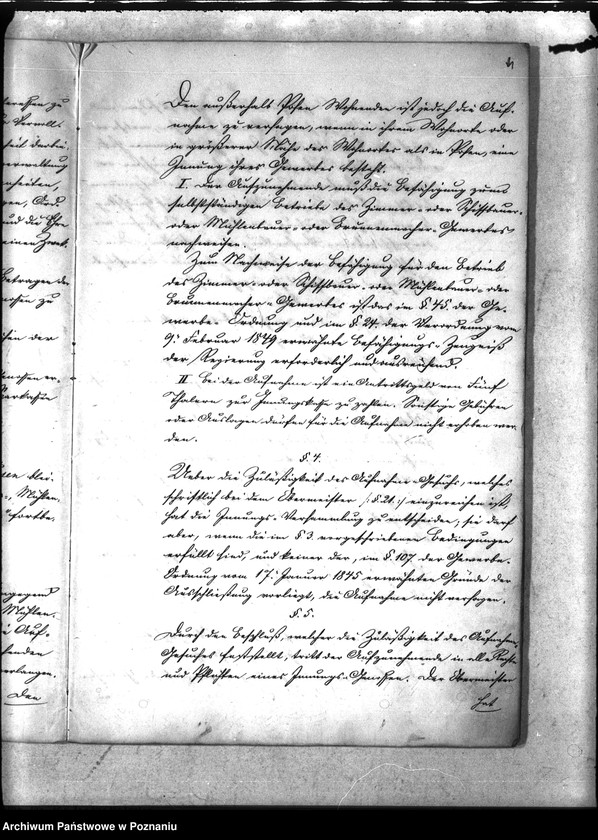 teressen zu
Verwaltung
nheiten,
und die Ehr
einen Zweck
Betragen der
nossen zu
hen der
nossen er-
Mühlen-
fortbe-
gegend
Mühlen-
Auf-
henden
verlangen.
Den
Den außerhalb Posen Wohnenden ist jedoch die Auf-
nahme zu versagen, wenn in ihrem Wohnorte oder
in größerer Nähe des Wohnortes als in Posen, eine
Innung ihres Gewerbes besteht.
I. Der Aufzunehmende muß die Befähigung zum
selbstständigen Betriebe des Zimmer- oder Schiffbauer-
oder Mühlenbauer- oder Brunnenmacher-Gewerbes
nachweisen.
Zum Nachweise der Befähigung für den Betrieb
des Zimmer- oder Schiffbauer- oder Mühlenbauer- oder
Brunnenmacher-Gewerbes ist das im § 45. der Ge-
werbe-Ordnung und im § 24. der Verordnung vom
9. Februar 1849 erwähnte Befähigungs-Zeugniß
der Regierung erforderlich und ausreichend.
II. Bei der Aufnahme ist ein Antrittsgeld von Fünf
Thalern zur Innungskasse zu zahlen. Sonstige Gebühren
oder Auslagen dürfen für die Aufnahme nicht erhoben wer-
den.
§ 4.
Ueber die Zulässigkeit des Aufnahme-Gesuchs, welches
schriftlich bei dem Obermeister /: § 21. :/ einzureichen ist,
hat die Innungs-Versammlung zu entscheiden; sie darf
aber, wenn die im § 3. vorgeschriebenen Bedingungen
erfüllt sind, und keiner der, im § 107. der Gewerbe-
Ordnung vom 17. Januar 1845 erwähnten Gründe der
Ausschließung vorliegt, die Aufnahme nicht versagen.
§ 5.
Durch den Beschluß, welcher die Zulässigkeit des Aufnahme
Gesuches feststellt, tritt der Aufzunehmende in alle Rechte
und Pflichten eines Innungs-Genossen. Der Obermeister
hat
Archiwum Państwowe w Poznaniu